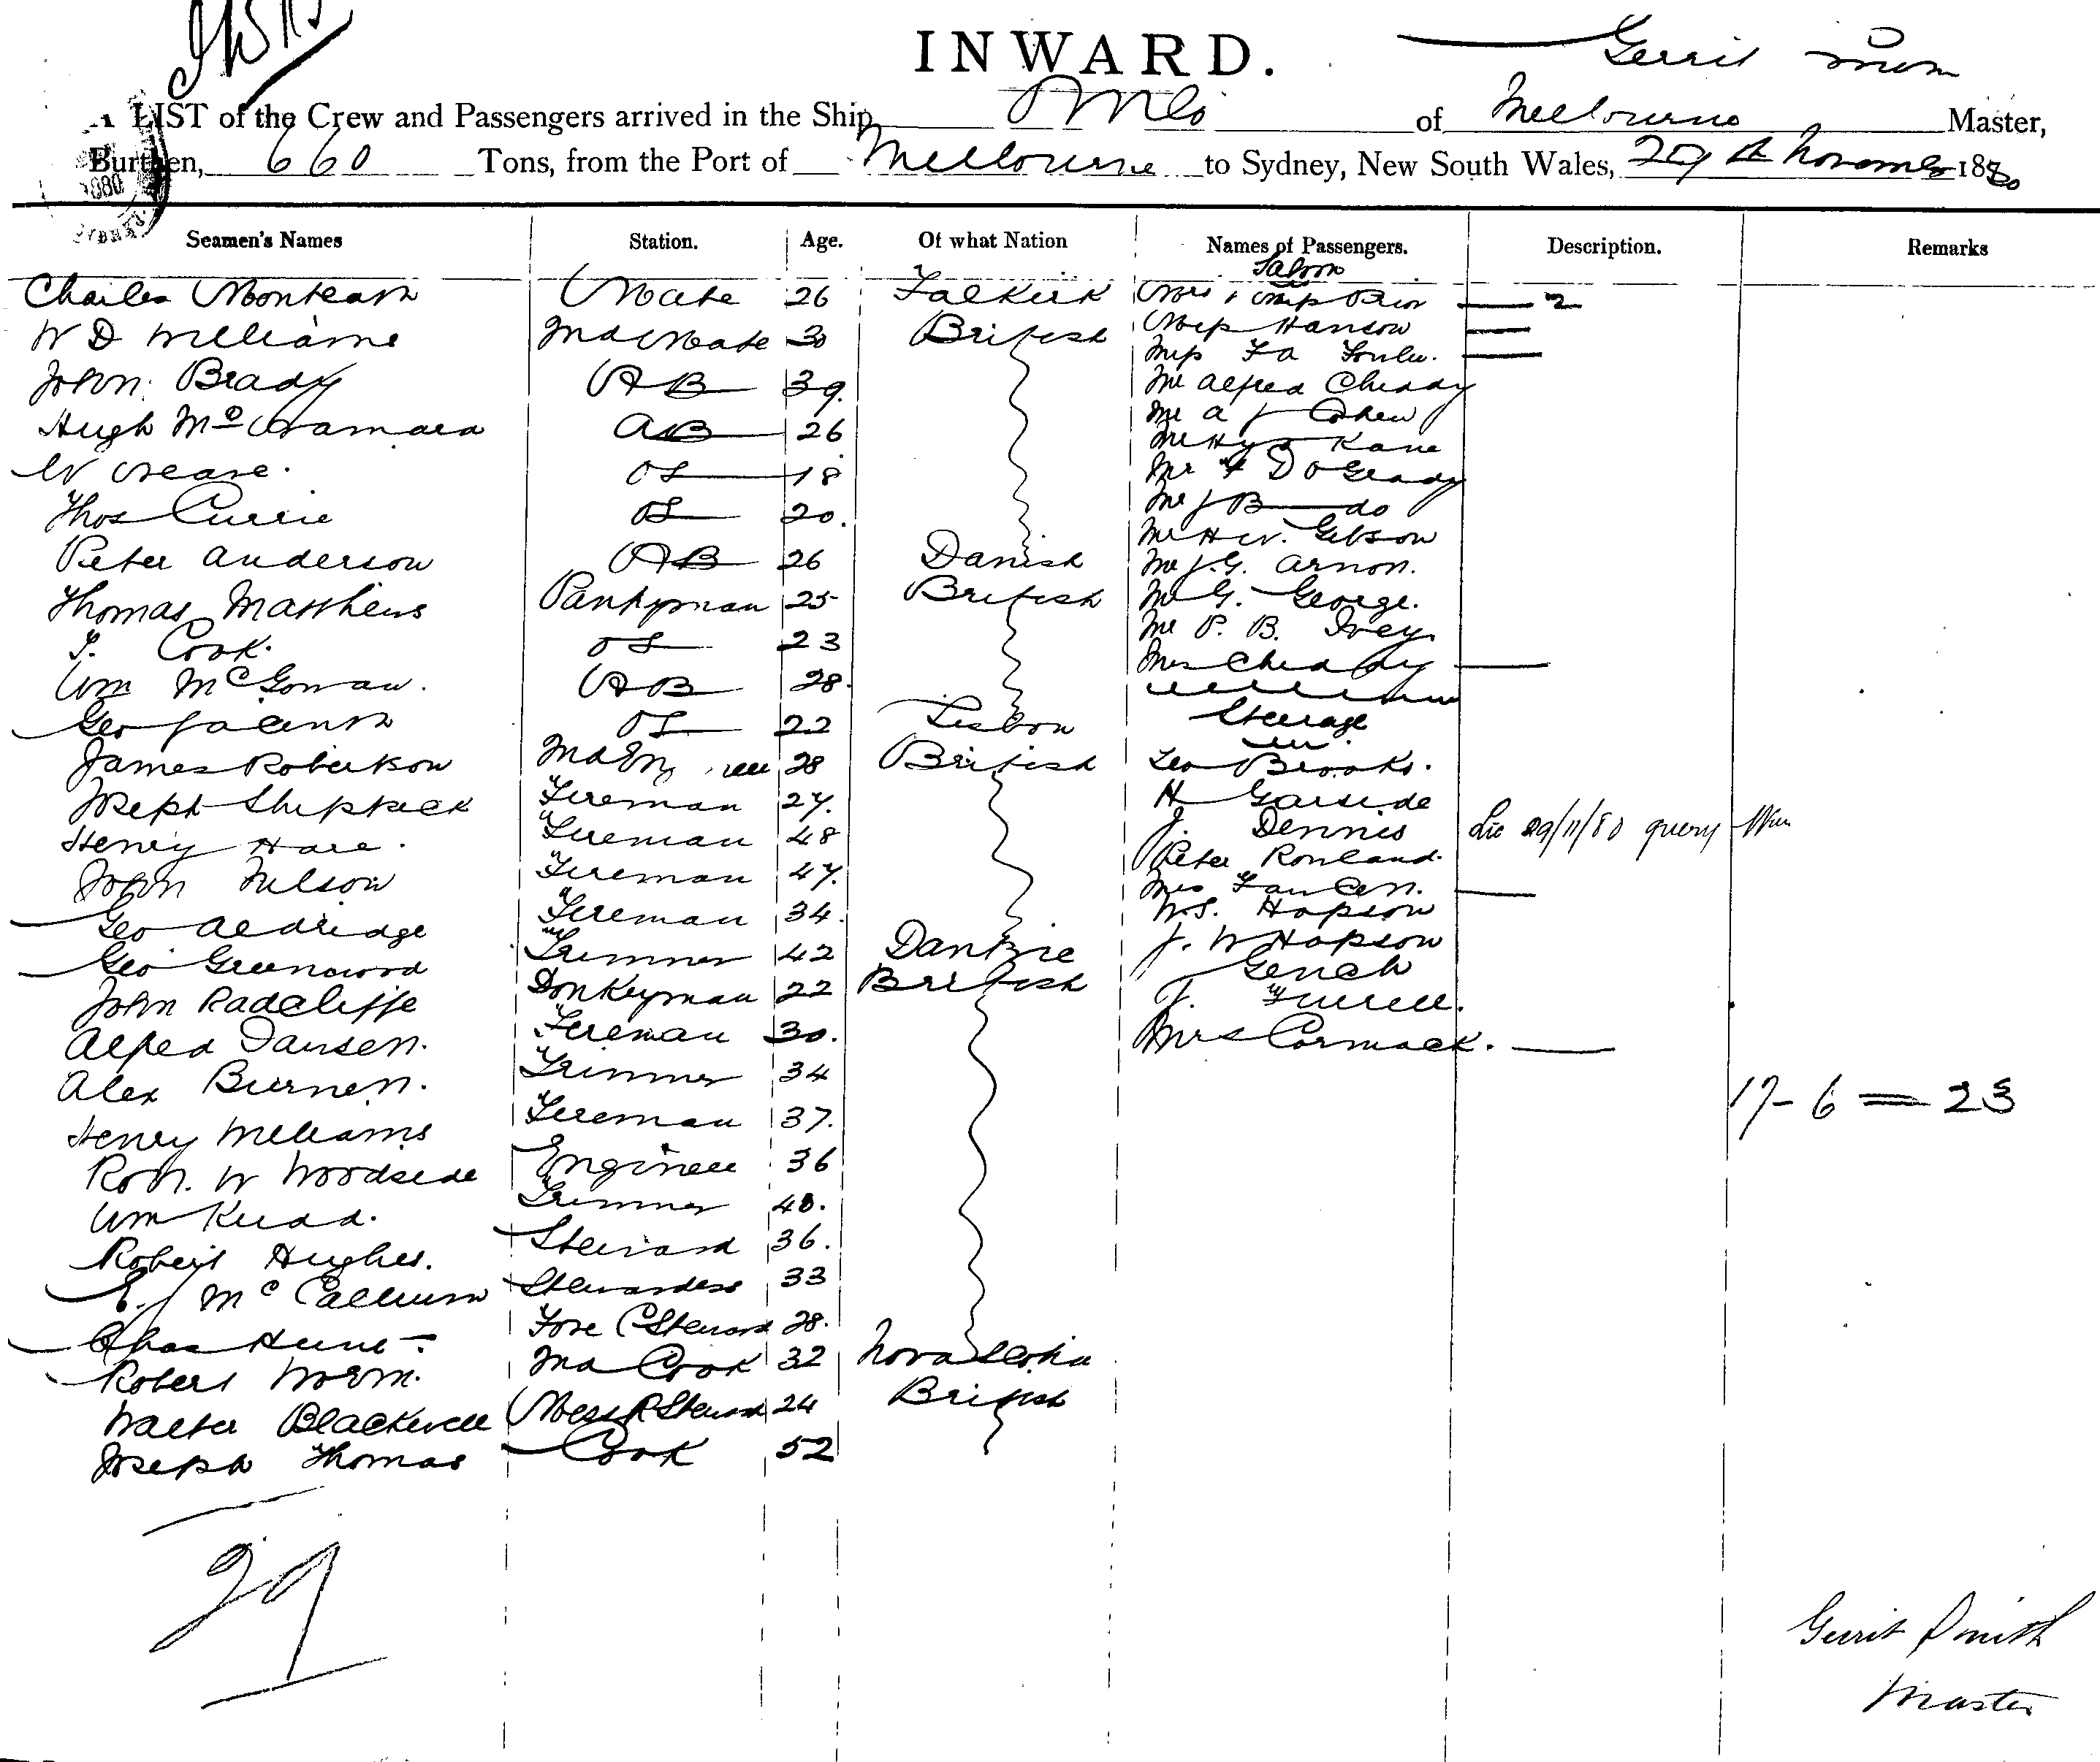 INWARD.
Gerrit
LIST of the Crew and Passengers arrived in the Ship of Melbourne Master,
Burthen, 660 Tons, from the Port of Melbourne to Sydney, New South Wales, 29th November 1880
Seamen's Names Station. Age. Of what Nation Names of Passengers. Description. Remarks
Saloon
Charles Monteath Mate 26 Falkirk 2
W D Williams 2nd Mate 30 British Miss Hanson
John Brady AB 39. Mr Alfred Cheddy
Hugh AB 26 Mr A J Cohen
W Crease. OS 18 Mr Kane
Mr F D O Grady
Thos Currie OS 20. Mr J B do
Mr H W. Gibson
Peter Anderson AB 26 Danish Mr J. G. Arnon.
Thomas Matthews Pantryman 25 British Mr G. George.
Mr P. B. Ivey
Cook. OS 23 Mrs Cheddy
Wm McGowan. AB 28.
Geo Jacenth OS 22 Lisbon Steerage
James Robertson 2nd 28 British Geo Brooks.
Joseph Fireman 27. H Garside
Henry Hare. Fireman 48 J. Dennis 29/11/80 query
Peter Rowland.
John Nelson Fireman 47.
Geo Aldridge Fireman 34. W.S. Hopson
Geo Greenwood Trimmer 42 J. W Hopson
John Radcliffe Donkeyman 22 British
Alfred Jansen. Fireman 30. Mrs Cormack.
Alex Trimmer 34
17-6=23
Henry Williams Fireman 37.
Robt. W Woodside Engineer 36
Wm Kidd. Trimmer 48.
Robert Hughes. Steward 36.
E. Stewardess 33
Chas Fore C Steward 28.
Robert 2nd Cook 32 Nova Scotia
Walter Blackwell Mess R Steward 24 British
Joseph Thomas Cook 52
29
Gerrit Smith
Master